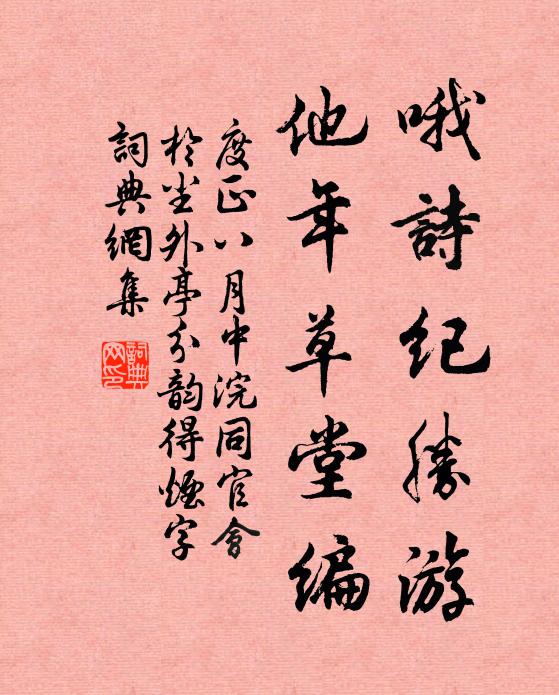 哦詩紀勝游
他年草堂編
度正八月中浣同官會
於尘外亭分韵得烟字
詞典網集
詞典網印